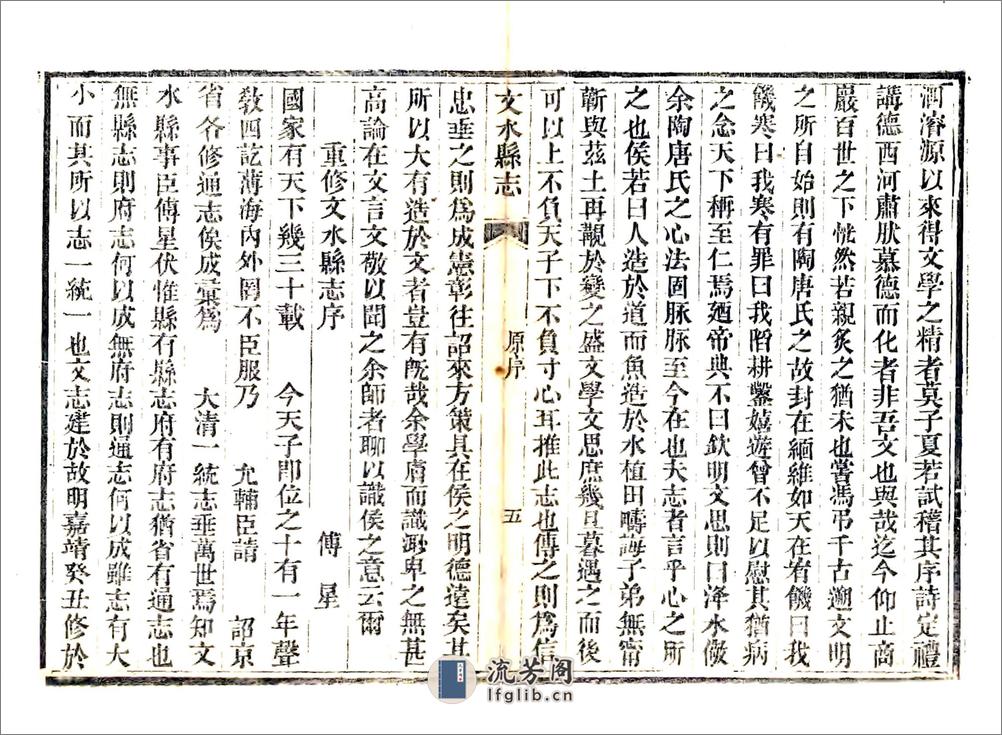 河濬源以來得文學之精者莫子夏若試稽其序詩定禮
講德西河肅肰慕德而化者非吾文也與哉迄今仰止商
巖百世之下恍然若親炙之猶未也嘗馮弔千古遡文明
之所自始則有陶唐氏之故封在緬維如天在宥饑曰我
饑寒曰我寒有罪曰我陷耕鑿嬉遊曾不足以慰其猶病
之念天下稱至仁焉廼帝典不曰欽明文思則曰洚水儆
余陶唐氏之心法固脉脉至今在也夫志者言乎心之所
之也侯若曰人造於道而魚造於水植田疇誨子弟無甯
靳與茲土再觀於變之盛文學文思庶幾旦暮遇之而後
可以上不負天子下不負寸心耳推此志也傳之則為信
文水縣志
原序
五
忠垂之則為成憲彰往詔來方策具在侯之明德遠矣其
所以大有造於文者豈有旣哉余學膚而識渺卑之無甚
高論在文言文敬以聞之余師者聊以識侯之意云爾
重修文水縣志序 傅星
國家有天下幾三十載 今天子卽位之十有一年聲
敎四訖薄海內外罔不臣服乃 允輔臣請 詔京
省各修通志俟成彚為 大清一統志垂萬世焉知文
水縣事臣傅星伏惟縣有縣志府有府志猶省有通志也
無縣志則府志何以成無府志則通志何以成雖志有大
小而其所以志一統一也文志建於故明嘉靖癸丑修於
流芳阁
lfglib.cn